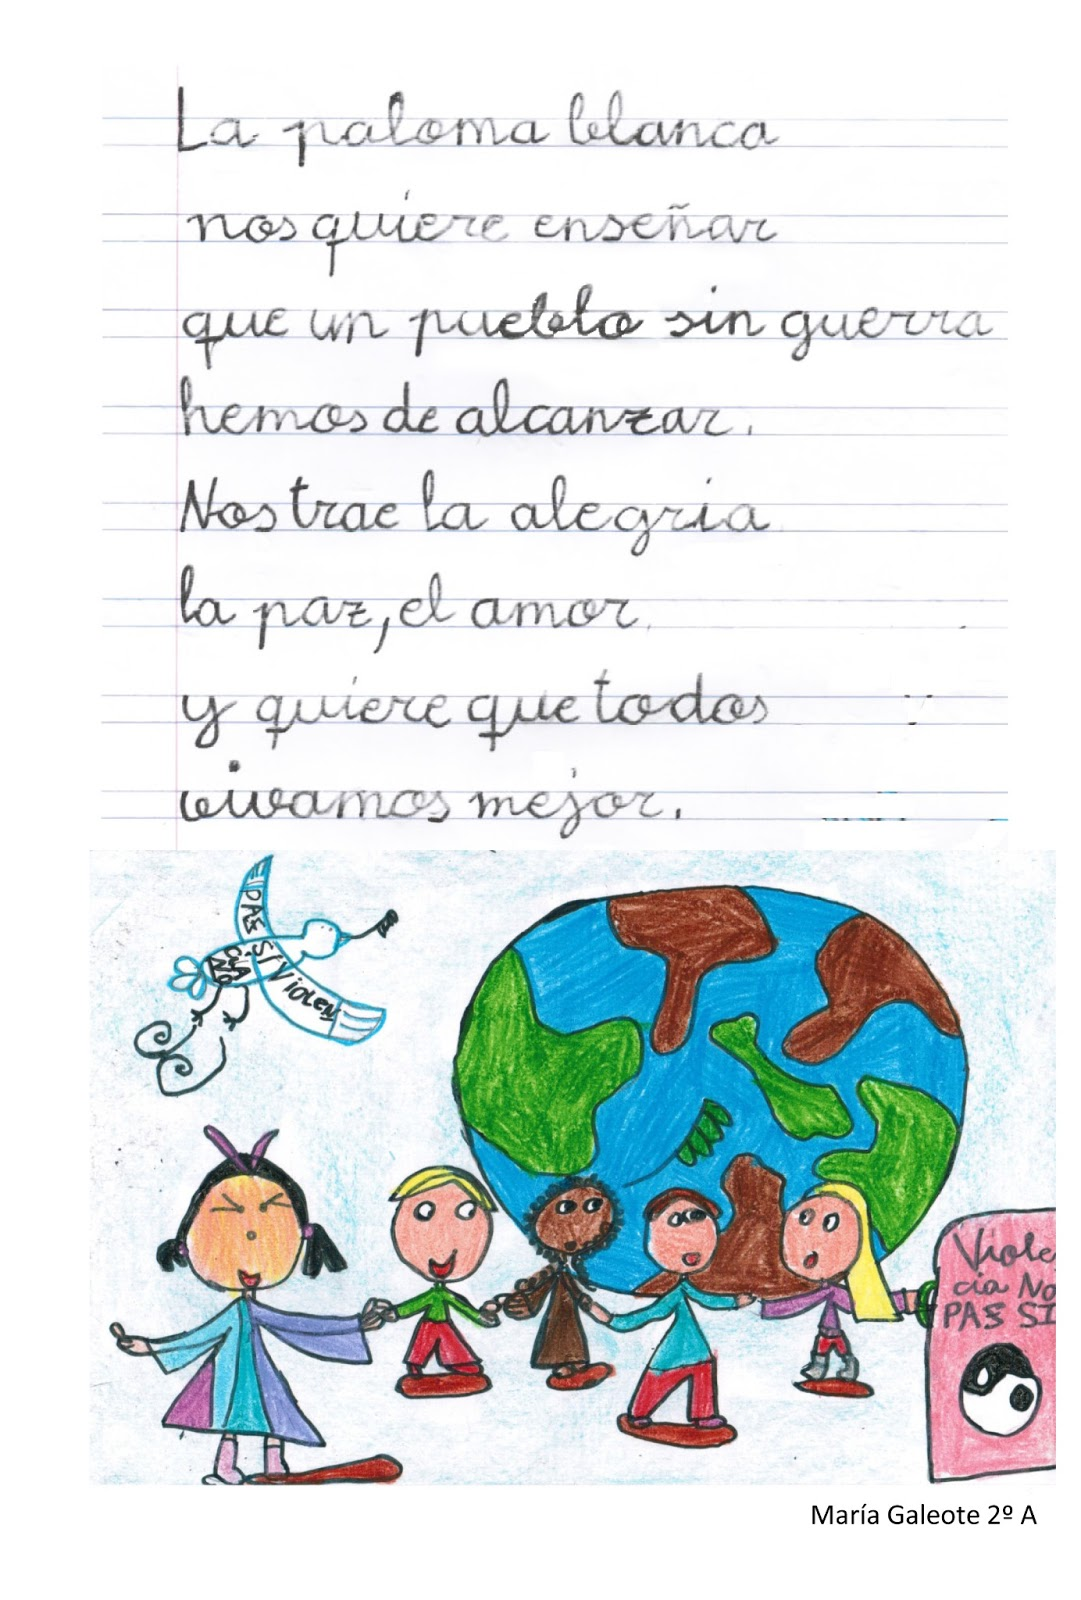 La paloma blanca
nos quiere enseñar
que un pueblo sin guerra
hemos de alcanzar.
Nos trae la alegria
la paz, el amor
y quiere que todos
vivamos mejor.
PAZ
SI VIOLEN
CIA
NO
Violen
cia No
PAZ SI
María Galeote 2º A